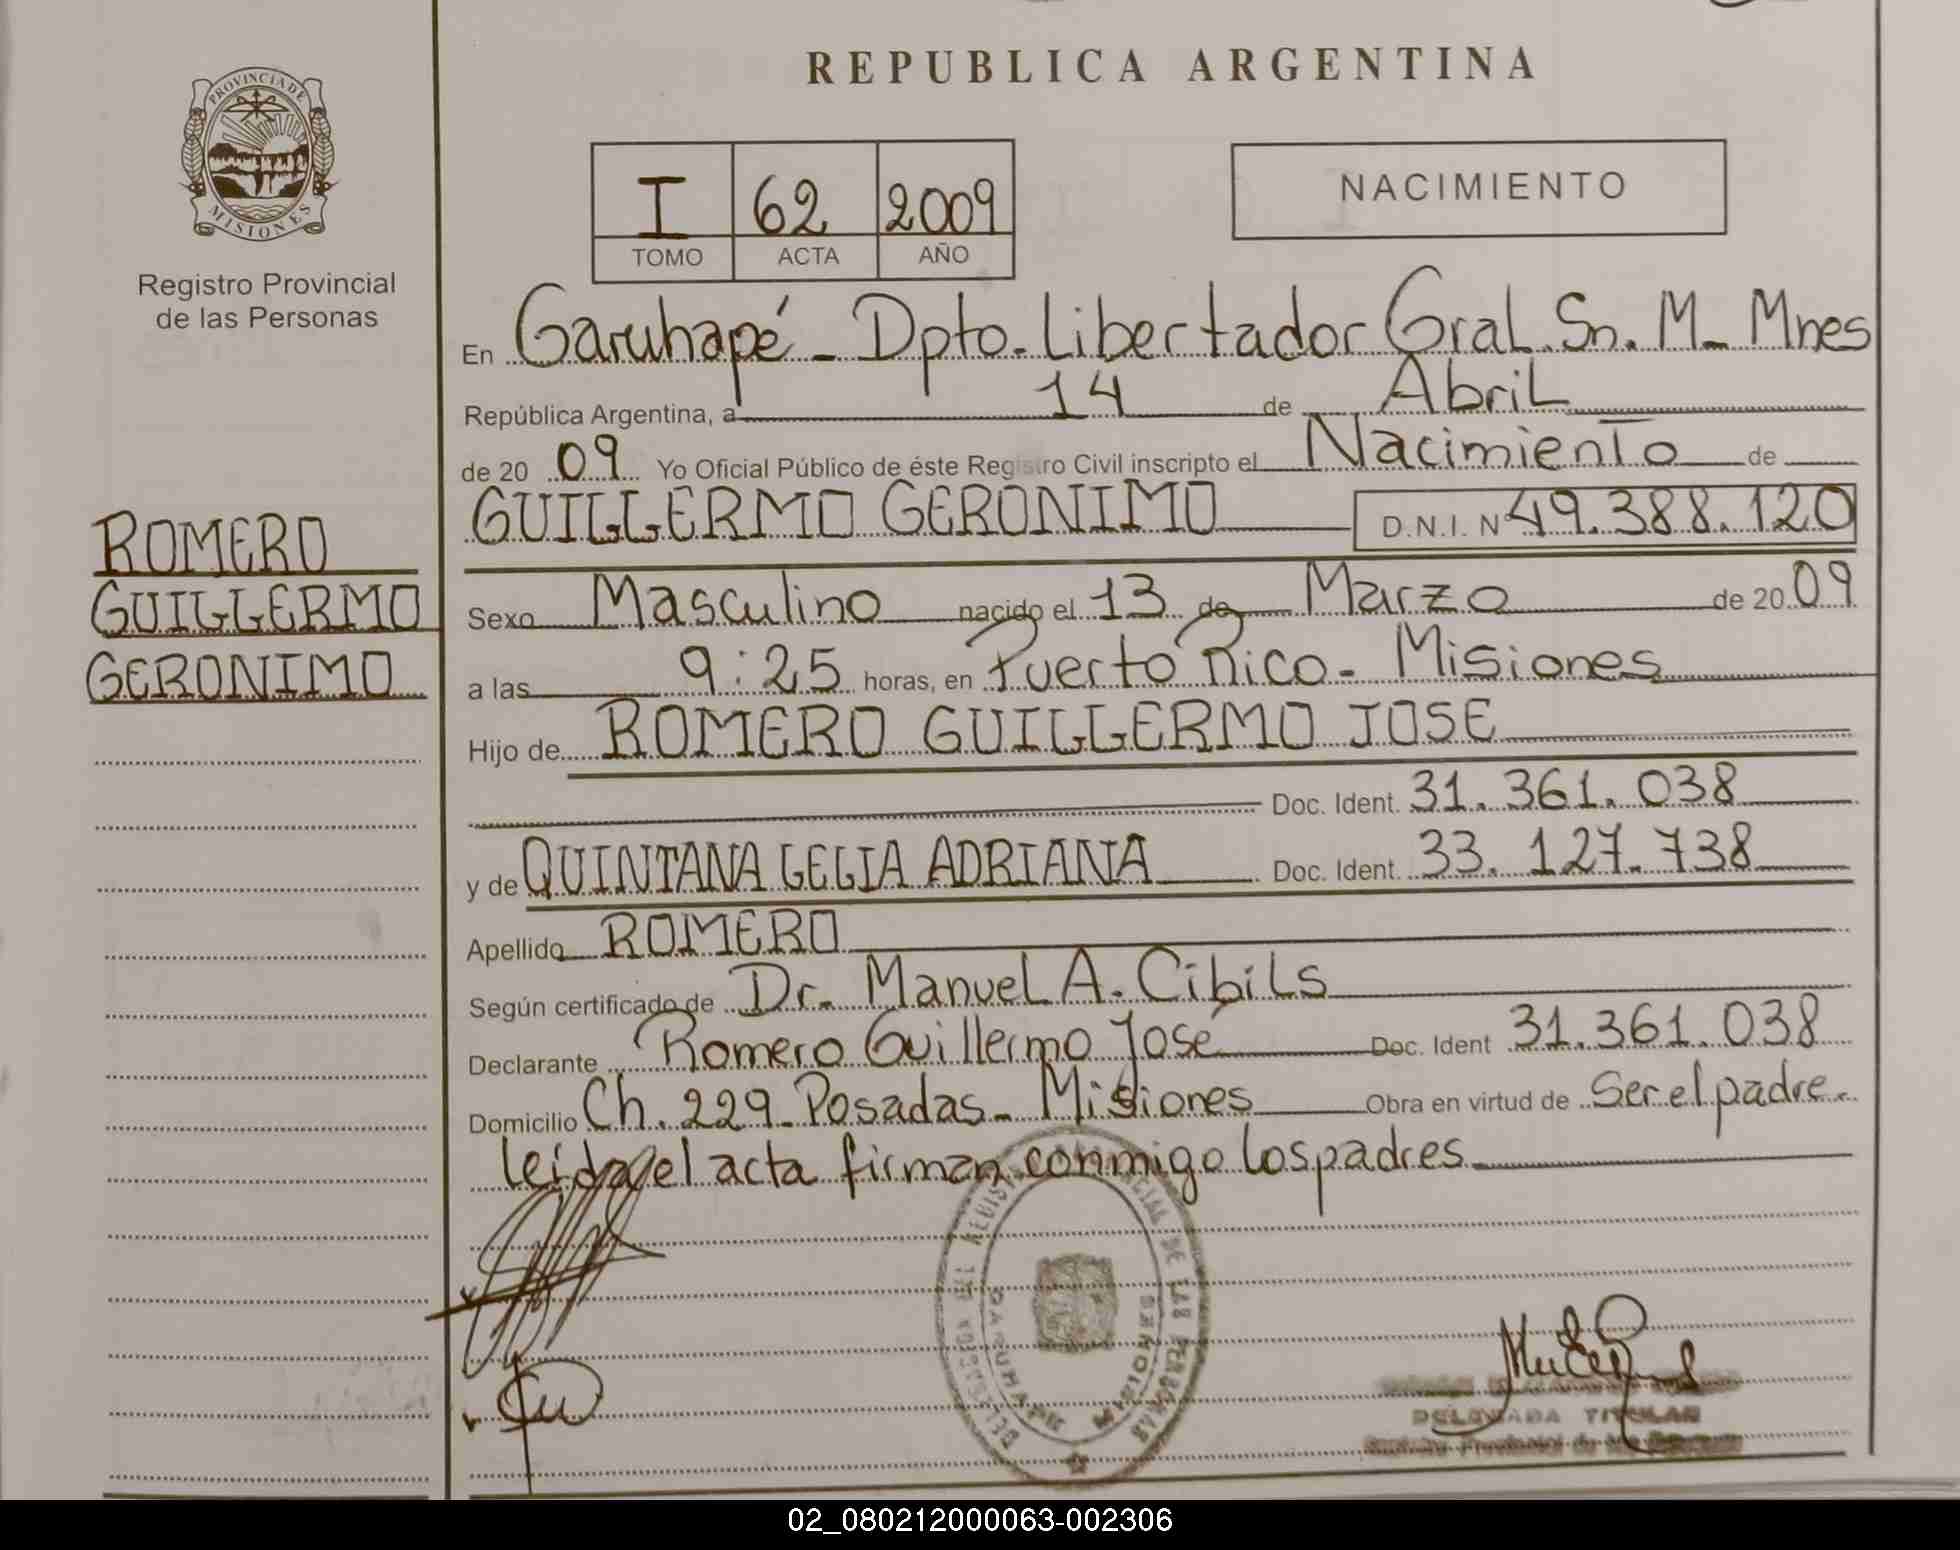 REPUBLICA ARGENTINA
PROVINCIA DE
MISIONES
Registro Provincial
de las Personas
I 62 2009
TOMO ACTA AÑO
NACIMIENTO
En Garuhapé - Dpto. Libertador Gral. Sn. M. Mnes
República Argentina, a 14 de Abril
de 20 09 Yo Oficial Público de éste Registro Civil inscripto el Nacimiento de
GUILLERMO GERONIMO D.N.I. N 49.388.120
ROMERO
GUILLERMO
GERONIMO
Sexo Masculino nacido el 13 de Marzo de 20 09
a las 9:25 horas, en Puerto Rico - Misiones
Hijo de ROMERO GUILLERMO JOSE
Doc. Ident. 31.361.038
y de QUINTANA LELIA ADRIANA Doc. Ident. 33.127.738
Apellido ROMERO
Según certificado de Dr. Manuel A. Cibils
Declarante Romero Guillermo José Doc. Ident 31.361.038
Domicilio Ch. 229 - Posadas - Misiones Obra en virtud de Ser el padre.
leída el acta firman conmigo los padres
DELEGADA TITULAR
02_080212000063-002306